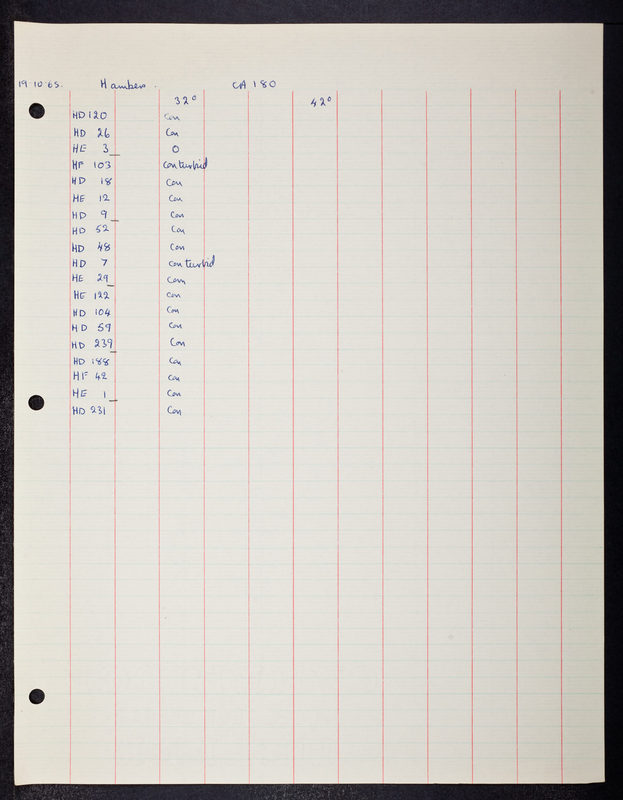 19 10 65. Hambers. CA 180
32° 42°
HD 120 Con
HD 26 Con
HE 3 0
HF 103 Con turbid
HD 18 Con
HE 12 Con
HD 9 Con
HD 52 Con
HD 48 Con
HD 7 Con turbid
HE 29 Con
HE 122 Con
HD 104 Con
HD 59 Con
HD 239 Con
HD 188 Con
HF 42 Con
HE 1 Con
HD 231 Con